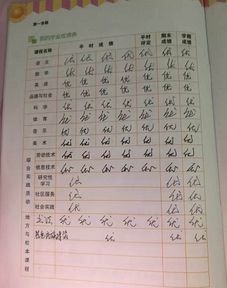 第一学期
我的学业成绩表
课程名称 平时成绩 平时评定 期末成绩 学期成绩
语文 优 优 优 优 优 优 优
数学 优 优 优 优 优 优 优
英语 优 优 优 优 优 优 优
品德与社会 优 优 优 优 优 优 优
科学 优 优 优 优 优 优 优
体育 优 优 优 优 优 优 优
音乐 优 优 优 优 优 优 优
美术 优 优 优 优 优 优 优
综合实践活动
劳动技术 优 优 优 优 优 优 优
信息技术 优 优 优 优 优 优 优
研究性学习 优 优 优
社区服务 优 优 优
社会实践 优 优 优
地方与校本课程
优 优 优 优 优 优
优 优 优